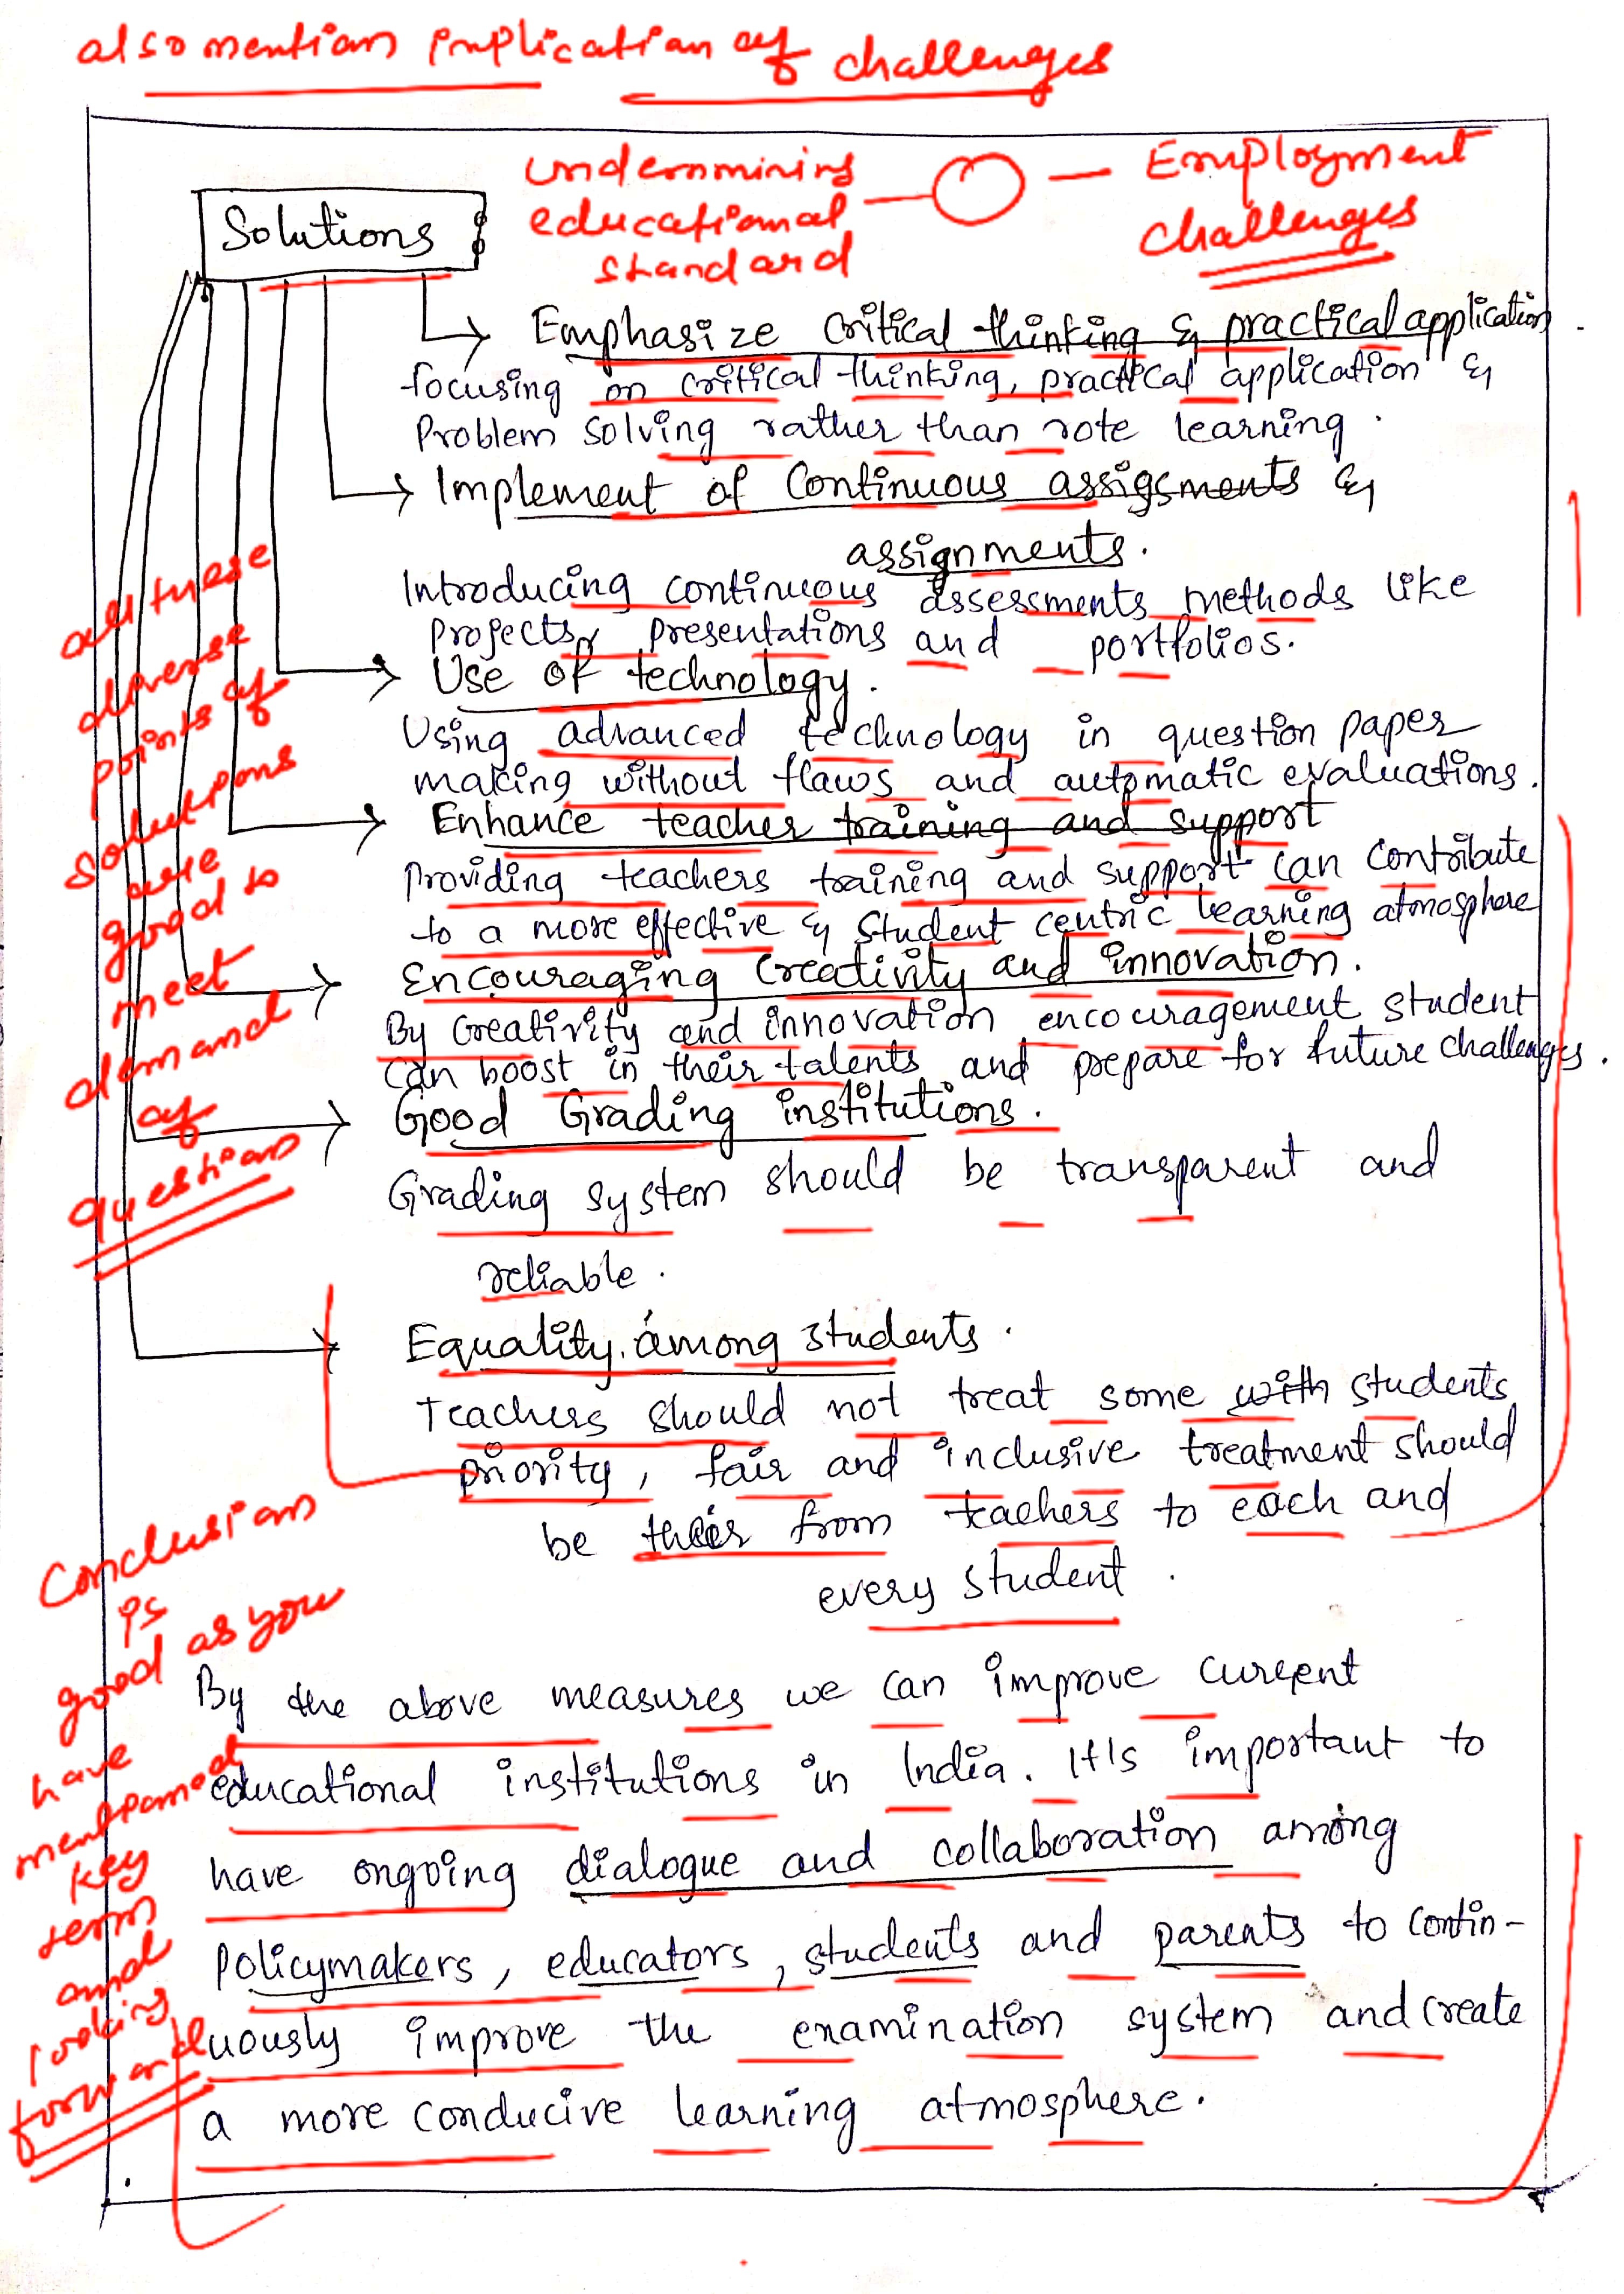 also mention implication of challenges
undermining
educational
standard
Employment
challenges
Solutions
Emphasize Critical thinking & practical application.
focusing on critical thinking, practical application &
Problem solving rather than rote learning.
Implement of Continuous assigsments &
assignments.
Introducing continuous assessments methods like
Projects, presentations and portfolios.
Use of technology.
Using advanced technology in question paper
making without flaws and automatic evaluations.
Enhance teacher training and support
Providing teachers training and support can contribute
to a more effective & student centric learning atmosphere
Encouraging Creativity and innovation.
By Creativity and innovation encouragement student
can boost in their talents and prepare for future challenges.
Good Grading institutions.
Grading system should be transparent and
reliable.
Equality among students.
Teachers should not treat some with students
priority, fair and inclusive treatment should
be from teachers to each and
every student.
all these
diverse
points of
solutions
are
good to
meet
demand
of
question
By the above measures we can improve current
educational institutions in India. It's important to
have ongoing dialogue and collaboration among
policymakers, educators, students and parents to contin-
uously improve the examination system and create
a more conducive learning atmosphere.
Conclusion
is
good as you
have
mentioned
key
term
and
looking
forward